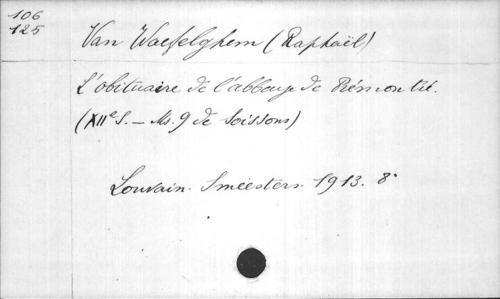 106
125
Van Waefelghem (Raphaël)
L'obituaire de l'abbaye de Prémontré.
(XIIe S. – Ms. 9 de Soissons)
Louvain. Smeesters. 1913. 8°